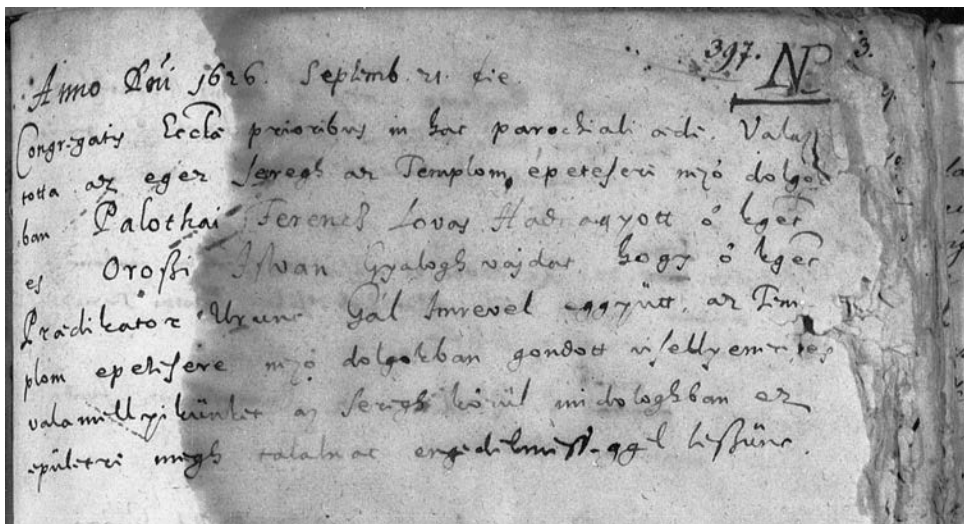 397. NP 3.
Anno Dni 1626. Septemb. 21. die.
Congregatis Eccla prioribus in hac parochiali aede. Valaz
totta az egez Seregh az Templom epetesere nezó dolgok
ban Palothai Ferencz Lovas Hadnagyott ó kgēt
es Oroßi Istvan Gyalogh vajdat. hogy ó kgēt
Prædikátor Urunc Gál Imrevel eggyütt, az Tem
plom epetesere nezó dolgokban gondott visellyenec, es
valamellyikünket az Seregh közül mi dologhban ez
epületre megh talalnac engedelmesseggel leßünc.